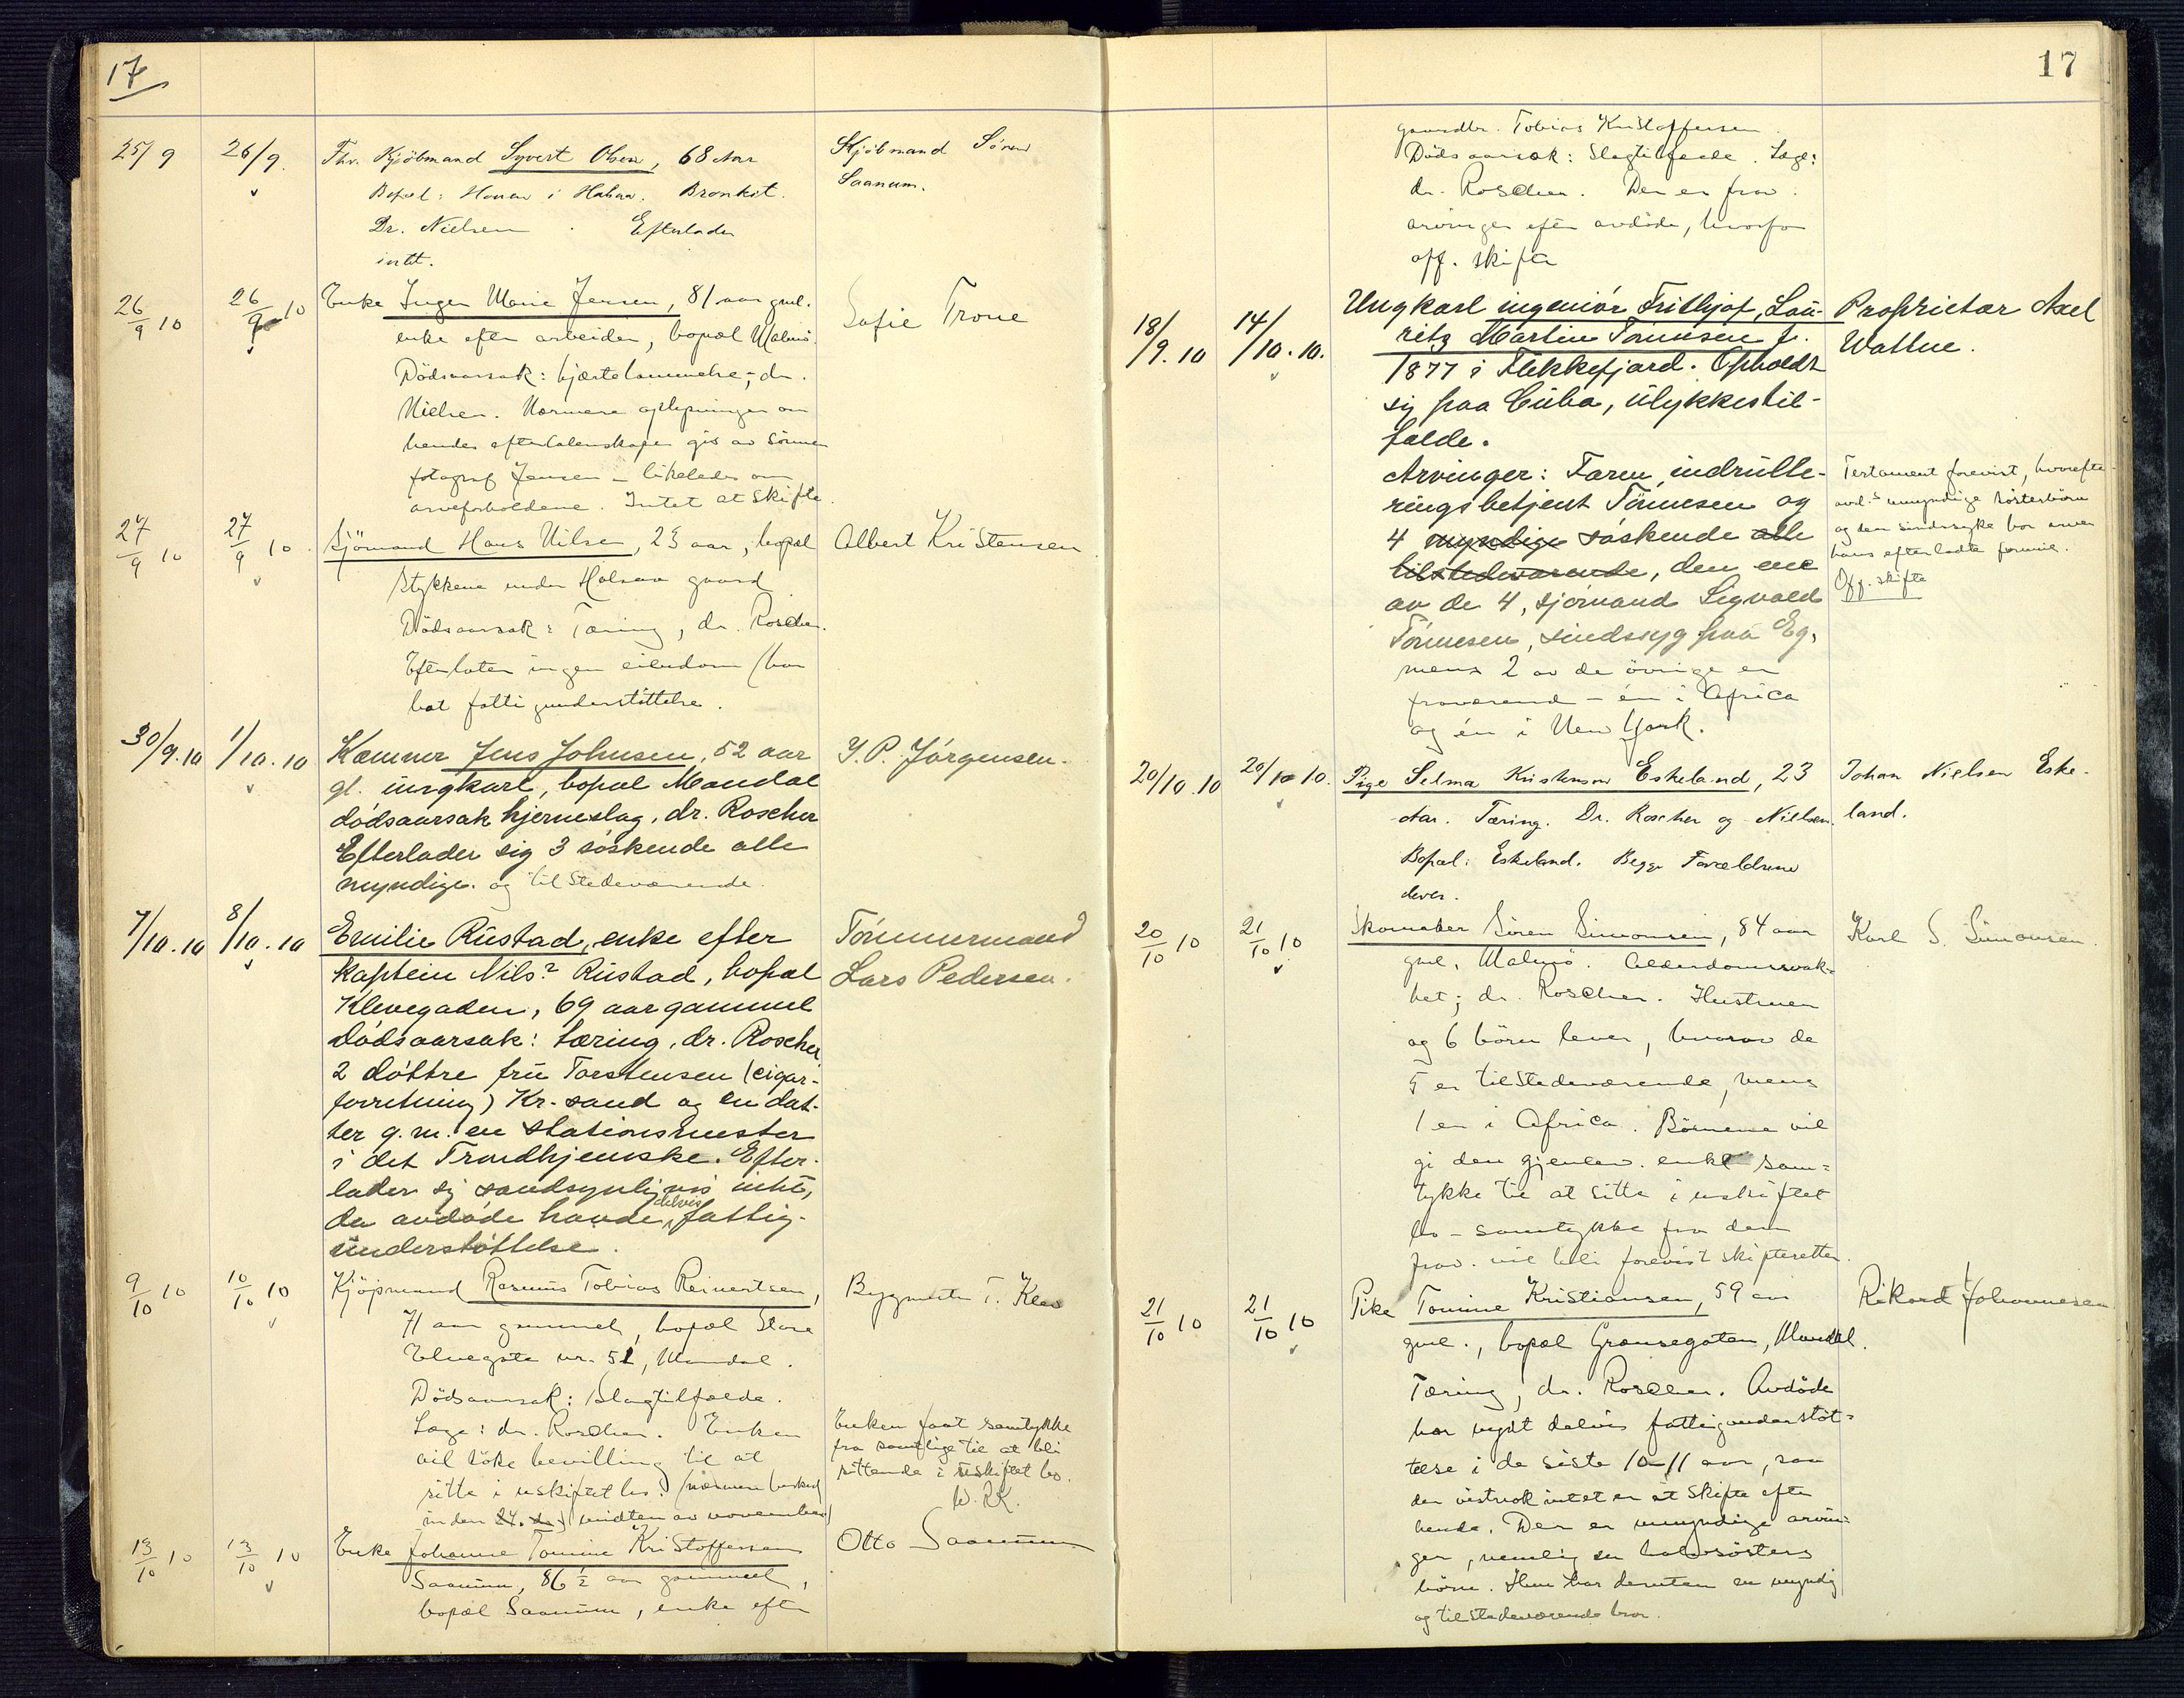 17
25/9 26/9. Fhv. Kjöbmand Syvert Olsen, 68 Aar
Bopæl: Hauan i Halsaa. Bronkit.
Dr. Nielsen. Efterlader
intet.
Skjöbmand Sören
Saanum.
26/9 10 26/9 10 Enke Inger Marie Jensen, 81 aar gml.
enke efter arbeider, bopæl Malmö.
Dödsaarsak: hjertelammelse; dr.
Nielsen. Nærmere oplysninger om
hendes efterladenskaper gis av sönnen
fotograf Jensen – likeledes om
arveforholdene. Intet at skifte.
Sofie Trone
27/9 10 27/9 10. Sjömand Hans Nilsen, 23 aar, bopæl
Stykkene under Halsaa gaard
Dödsaarsak: Tæring, dr. Roscher.
Efterlater ingen eiendom (har
hat fattigunderstöttelse.
Albert Kristensen
30/9.10 1/10.10 Kæmner Jens Johnsen, 52 aar
gl. ungkarl, bopæl Mandal
dödsaarsak hjerneslag, dr. Roscher
Efterlader sig 3 söskende alle
myndige. og tilstedeværende.
J. P. Jörgensen.
7/10.10 8/10.10 Emilie Rustad, enke efter
kaptein Nils? Rustad, bopæl
Klevegaden, 69 aar gammel
Dödsaarsak: tæring, dr. Roscher,
2 döttre fru Torstensen (cigar-
forretning) Kr.sand og en dat-
ter g. m. en stationsmester
i det Trondhjemske. Efter-
lader sig sandsynligvis intet,
da avdöde havde delvis fattig-
understöttelse.
Tömmermand
Lars Pedersen.
9/10 10 10/10 10 Kjöpmand Rasmus Tobias Reinertsen,
71 aar gammel, bopæl Store
Elvegate nr. 51, Mandal.
Dödsaarsak: Slagtilfælde.
Læge: dr. Roscher. Enken
vil söke bevilling til at
sitte i uskiftet bo. (nærmere besked
inden 24. ds.) midten av november)
Bygmester T. Klev
Enken faat samtykke
fra samtlige til at bli
sittende i uskiftet bo.
W. RK.
13/10 10 13/10 10 Enke Johanne Tomine Kristoffersen
Saanum, 86½ aar gammel,
bopæl Saanum, enke efter
Otto Saanum
17
gaardbr. Tobias Kristoffersen
Dödsaarsak: Slagtilfælde. Læge:
dr. Roscher. Der er frav.
arvinger efter avdöde, hvorfor
off. skifte
18/9.10 14/10.10. Ungkarl ingeniör Frithjof, Lau-
ritz Martin Tönnesen f.
1877 i Flekkefjord. Opholdt
sig paa Cuba, ulykkestil-
fælde.
Arvinger: Faren, indrulle-
ringsbetjent Tönnesen og
4 myndige söskende alle
tilstedeværende, den ene
av de 4, sjömand Sigvald
Tönnesen, sindssyg paa Eg,
mens 2 av de övrige er
fraværend – én i Africa
og én i New York.
Proprietær Axel
Wattne.
Testament forevist, hvorefter
avd.s umyndige sösterbörn
og den sindssyke bror arver
hans efterladte formue.
Off. skifte
20/10.10 20/10 10. Pige Selma Kristensen Eskeland, 23
Aar. Tæring. Dr. Roscher og Nielsen.
Bopæl: Eskeland. Begge Forældrene
lever.
Johan Nielsen Eske-
land.
20/10 10 21/10 10 Skomaker Sören Simonsen, 84 aar
gml, Malmö. Alderdomssvak-
het; dr. Roscher. Hustruen
og 6 börn lever, hvorav de
5 er tilstedeværende, mens
1 er i Africa. Börnene vil
gi den gjenlev. enke sam-
tykke til at sitte i uskiftet
bo – samtykke fra den
frav. vil bli forevist skifteretten.
Karl S. Simonsen.
21/10 10 21/10 10 Pike Tomine Kristiansen, 59 aar
gml., bopæl Grænsegaten, Mandal.
Tæring, dr. Roscher. Avdöde
har nydt delvis fattigunderstöt-
telse i de siste 10-11 aar, saa
der vistnok intet er at skifte efter
hende. Der er umyndige arvin-
ger, nemlig en halvsösters
börn. Hun har desuten en myndig
og tilstedeværende bror.
Rikard Johannesen.